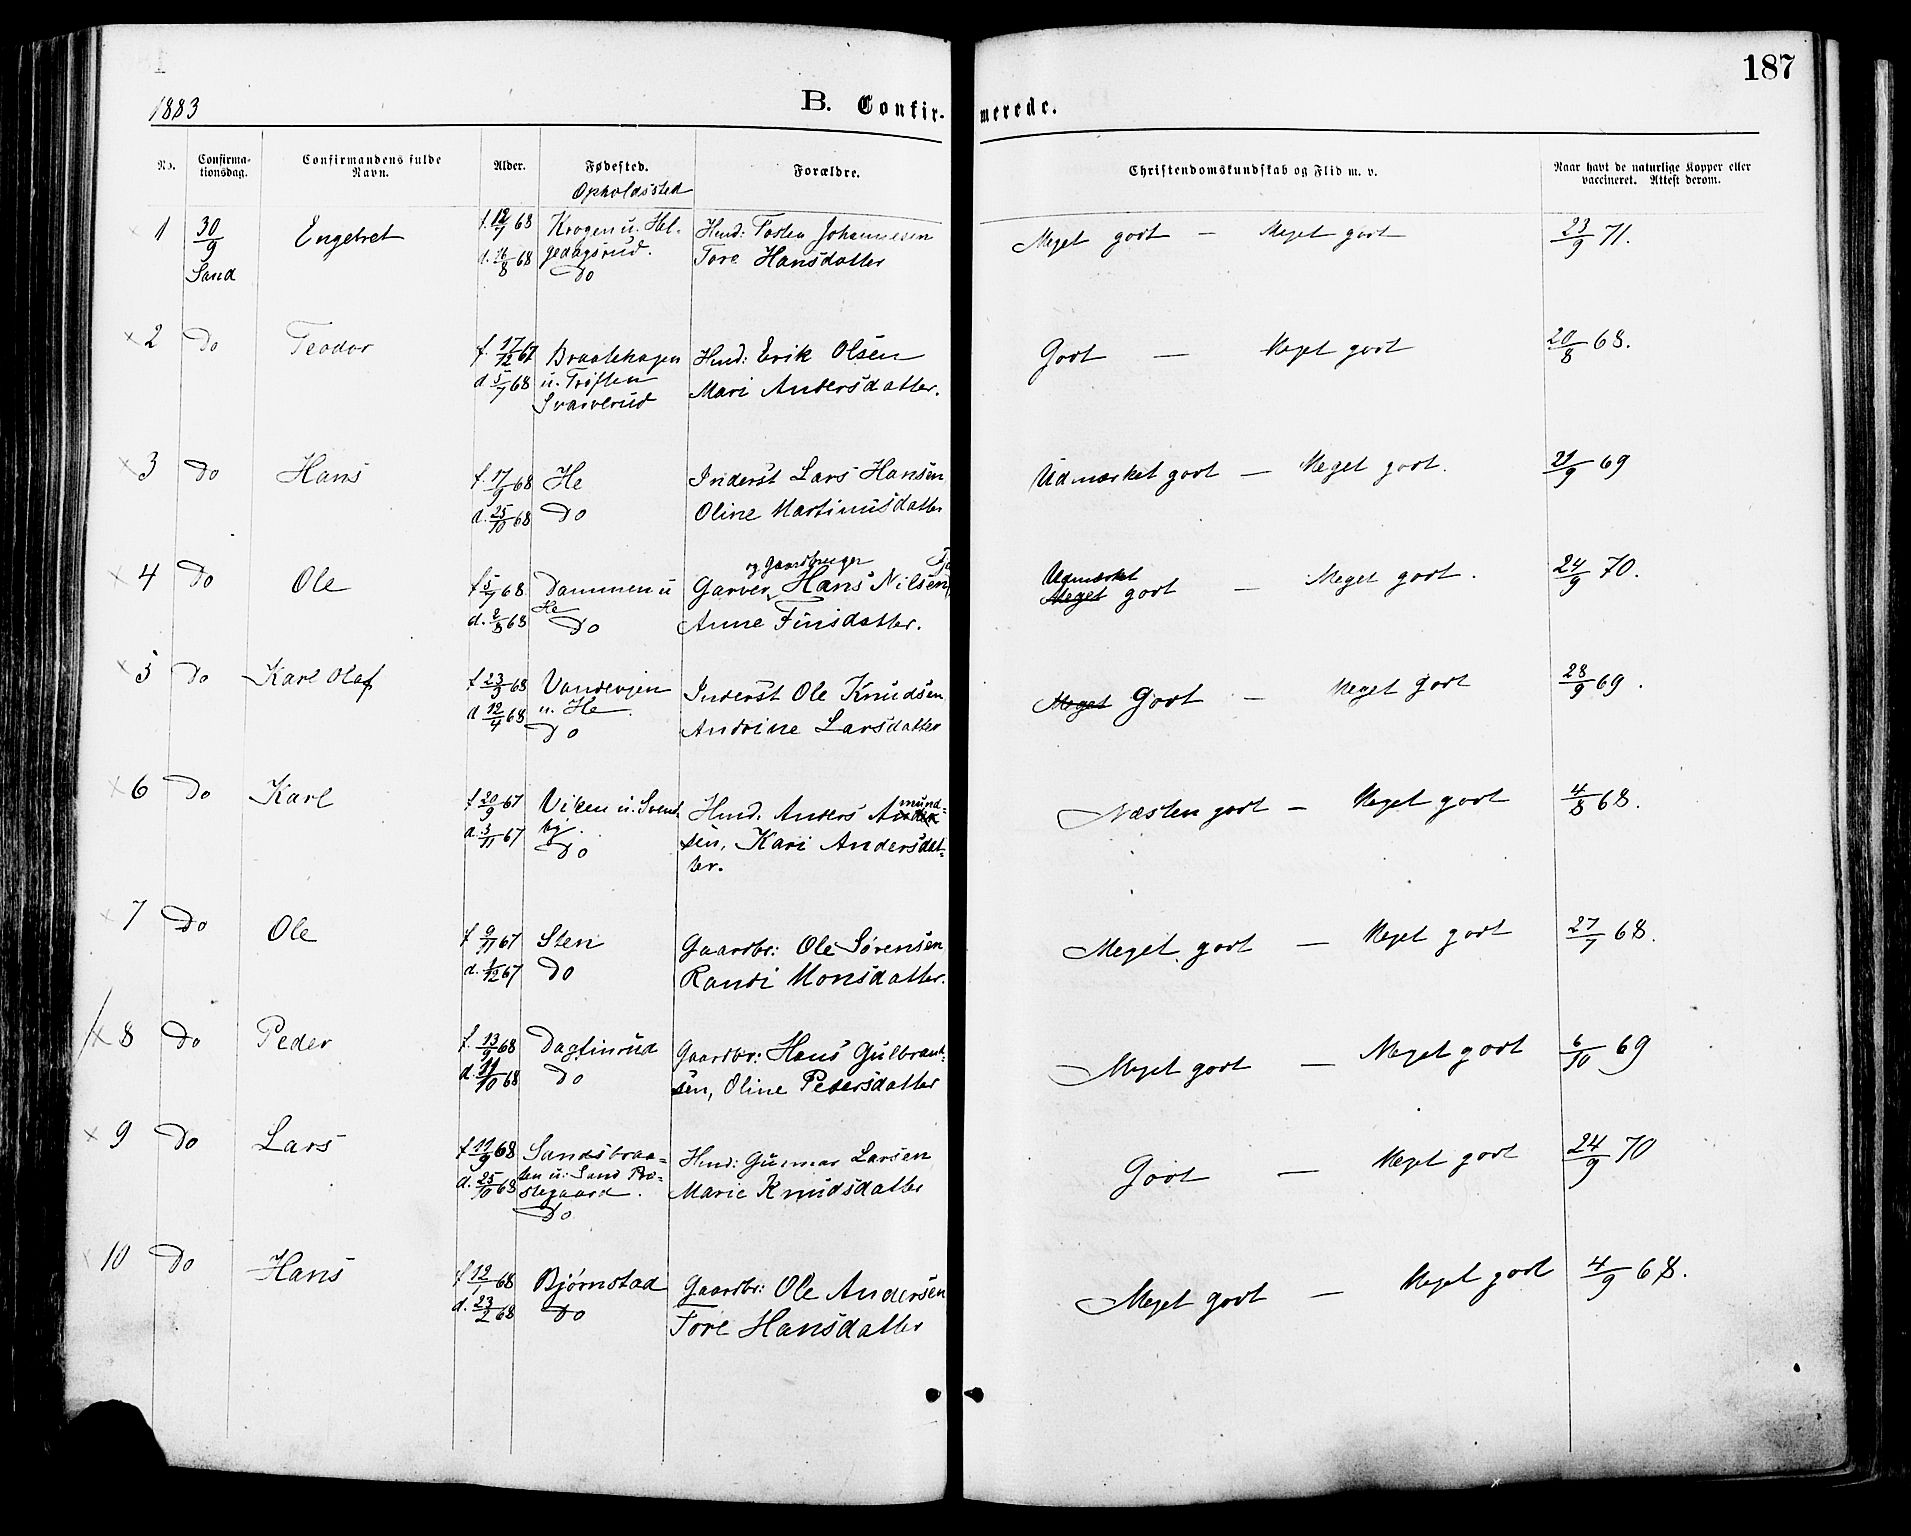 187
1883
B. Confirmerede.
No.
Confirma-
tionsdag.
Confirmandens fulde
Navn.
Alder.
Fødested.
Opholdssted
Forældre.
Christendomskundskab og Flid m. v.
Naar havt de naturlige Kopper eller
vaccineret. Attest derom.
1 30/9 Engebret f. 12/7 68 Krogen u. Hel- Hmd: Tosten Johannesen Meget godt — Meget godt 23/9 71.
Sand d. 16/8 68 gedagsrud. Tore Hansdatter
Do
2 Do Teodor f. 17/12 67 Braatehagen Hmd: Erik Olsen Godt — Meget godt 20/8 68.
d 5/7 68 u. Trøften Mari Andersdatter.
Svarverud
3 Do Hans f. 17/9 68 He Inderst Lars Hansen Udmærket godt — Meget godt. 21/9 69
d. 25/10 68 Do Oline Martinusdatter
og Gaardbruger
4 Do Ole f 5/7 68 Dammen u Garver Hans Nilsen Udmærket
Meget godt — Meget godt. 24/9 70.
d. 2/8 68 He Anne Finsdatter.
Do
5 Do Karl Olaf f 23/2 68 Vandevjen Inderst Ole Knudsen Meget Godt — Meget godt 28/9 69.
d 12/4 68 u. He. Andrine Larsdatter
Do
6 Do Karl f 20/9 67 Viken u. Svend- Hmd. Anders Amund- Næsten godt — Meget godt 4/8 68.
d. 3/11 67 by. sen, Kari Andersdat-
Do ter.
7 Do Ole f 9/11 67 Sten Gaardbr: Ole Sørensen Meget godt — Meget godt 27/7 68.
d. 1/12 67 Do Randi Monsdatter.
8 Do Peder f. 13/9 68 Dagfinrud Gaardbr: Hans Gulbrand- Meget godt — Meget godt 6/10 69
d. 11/10 68 Do sen, Oline Pedersdatter
9 Do Lars f 11/9 68 Sandsbraa- Hmd: Gunnar Larsen Godt — Meget godt 24/9 70
d. 25/10 68 ten u: Sand Præ- Marie Knudsdatter
stegaard.
Do
10 Do Hans f 12/1 68 Bjørnstad Gaardbr: Ole Andersen Meget godt — Meget godt 4/9 68.
d. 23/2 68 Do Tore Hansdatter